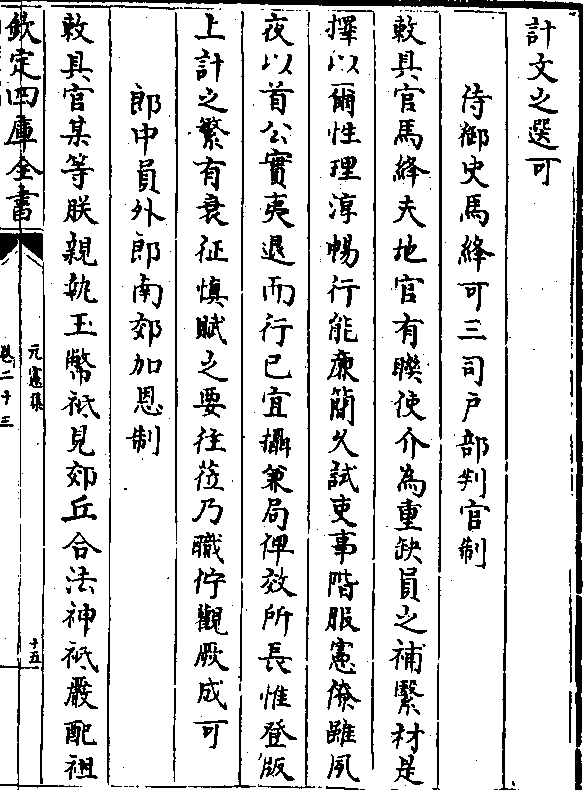 計文之選可
侍御史馬絳可三司戸部判官制
敕具官馬絳夫地官有聨使介為重缺員之補繄材是
擇以爾性理淳暢行能亷簡久試吏事階服憲僚雖夙
夜以首公實夷退而行已宜攝兼局俾效所長惟登版
上計之繁有衰征慎賦之要往莅乃職佇觀厥成可
郎中員外郎南郊加恩制
敕具官某等朕親執玉幣祗見郊丘合法神祗嚴配祖
欽定四庫全書
元憲集
卷二十三
十五